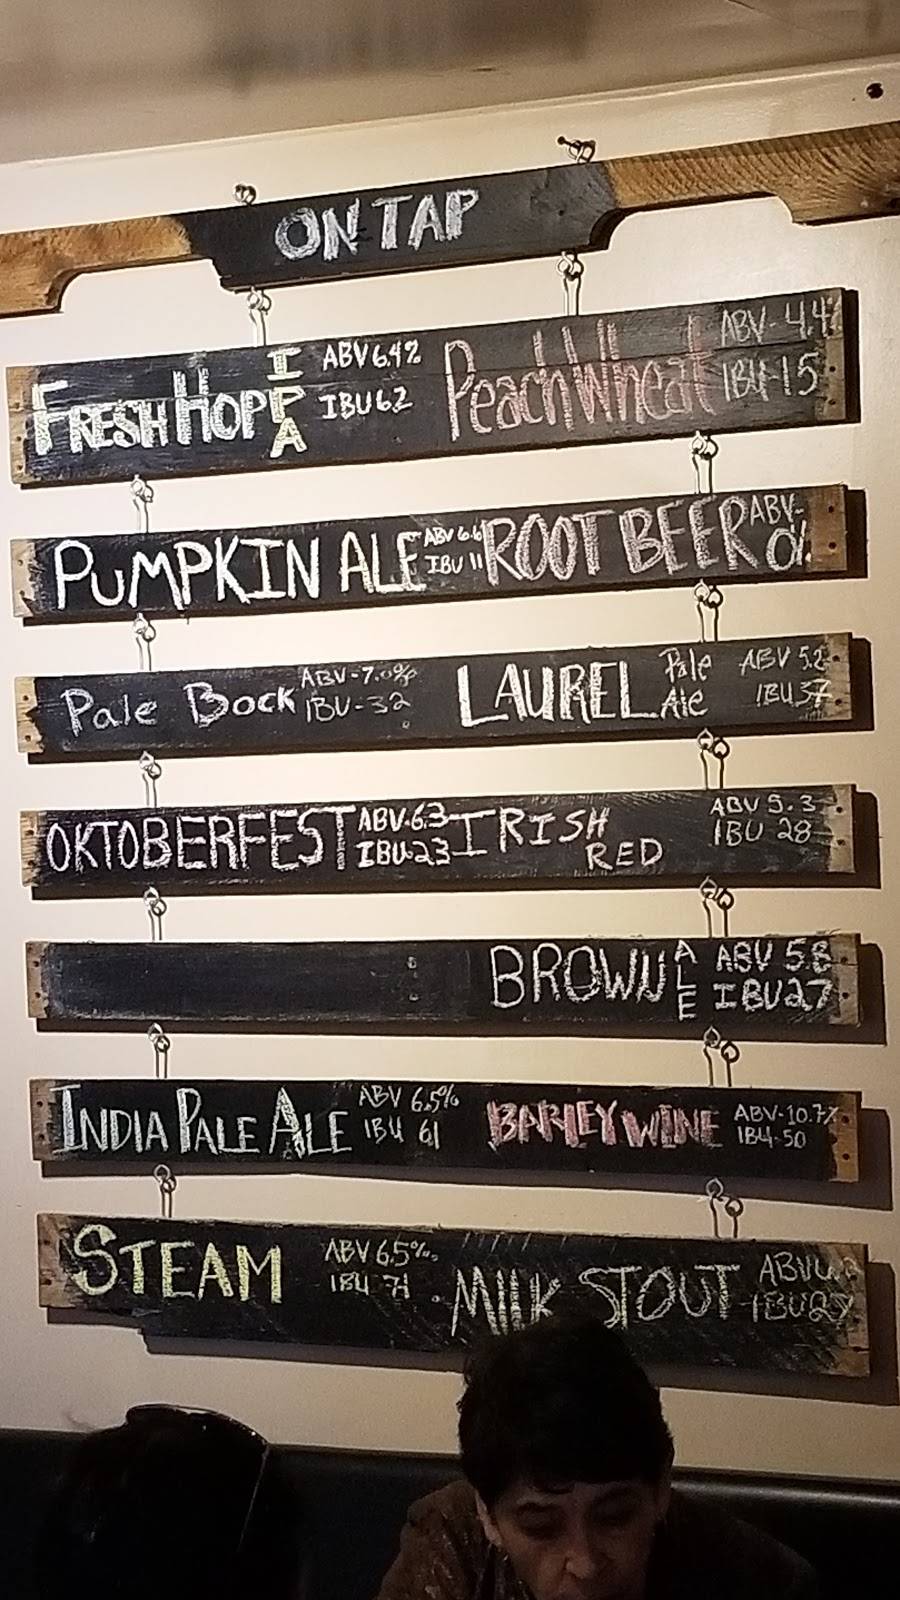 ON TAP
FRESH HOP IPA ABV 6.4% IBU 62
Peach Wheat ABV-4.4% IBU-15
PUMPKIN ALE ABV 6.6 IBU 11
ROOT BEER ABV-0%
Pale Bock ABV-7.0% IBU-32
LAUREL Pale Ale ABV 5.2 IBU 37
OKTOBERFEST ABV-6.3 IBU-23
IRISH RED ABV 5.3 IBU 28
BROWN ALE ABV 5.8 IBU 27
INDIA PALE ALE ABV 6.5% IBU 61
BARLEY WINE ABV-10.7% IBU-50
STEAM ABV 6.5% IBU 71
MILK STOUT ABV IBU